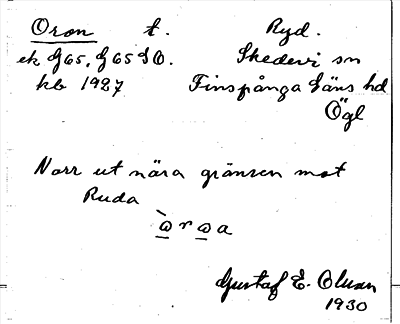 Oron t. Ryd.
ek G65, G65 SO. Skedevi sn
kb 1927 Finspånga läns hd
Ögl
Norr ut nära gränsen mot
Ruda
òrωa
Gustaf E. Olsson
1930